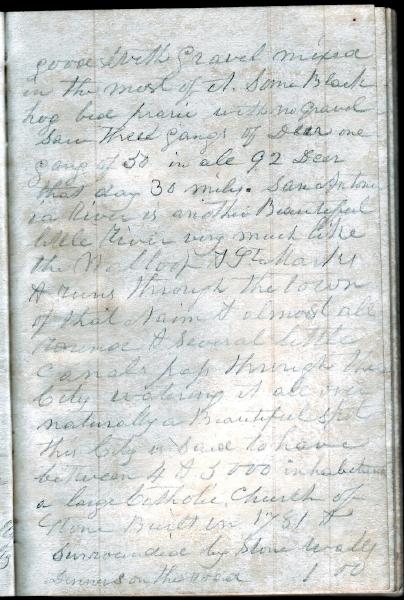 good with Gravel mixed
in the most of it. Some Black
hog bed prarie with no gravel
Saw three gangs of Deer one
gang of 50 in all 92 Deer
that day 30 mily. San Antoni
va River is another Beautiful
little River very much like
the St Marks
& runs through the town
of that Naim & almost all
round & several little
canals pass through the
City watering it all over
naturally a Beautiful spot
this City is said to have
between 4 & 5000 inhabitan
a large Catholic Church of
Stone Built in 1781 &
surrounded by Stone walls
Dinners on the road 1 00